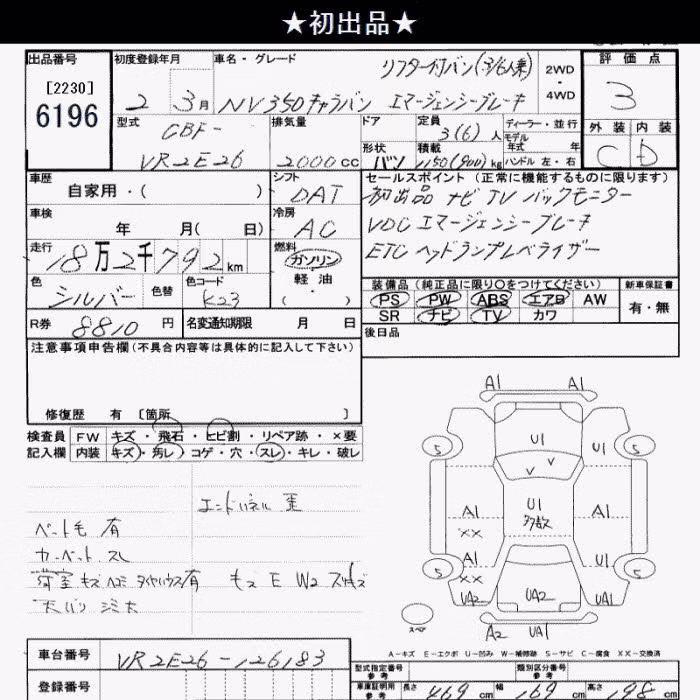 ★初出品★
出品番号 初度登録年月 車名・グレード リフター付バン(3/6人乗) 2WD・4WD 評価点
[2230]
6196
2 3月 NV350キャラバン エマージェンシーブレーキ 3
型式 CBF- 排気量 ドア 定員 3(6)人 ディーラー・並行 外装 内装
モデル年式 年
VR2E26 2000cc 形状 バン 積載 1150(900)kg ハンドル 左・右 C D
車歴 シフト セールスポイント(正常に機能するものに限ります)
自家用・( ) DAT 初出品 ナビ TV バックモニター
車検 冷房 VDC エマージェンシーブレーキ
年 月( 日) AC ETC ヘッドランプレベライザー
走行 燃料
18万2千792km ガソリン
軽油
( )
装備品(純正品に限り○をつけてください) 新車保証書
色 シルバー 色替 色コード K23 PS PW ABS エアB AW 有・無
SR ナビ TV カワ
R券 8810円 名変通知期限 月 日 後日品
注意事項申告欄(不具合内容等は具体的に記入して下さい)
修復歴 有 [箇所 ]
検査員 FW キズ・飛石・ヒビ割・リペア跡・×要
記入欄 内装 キズ・汚レ・コゲ・穴・スレ・キレ・破レ
エンドパネル 歪
ペット毛 有
カーペット スレ
荷室 キズ ヘコミ タイヤハウス有
天バリ
A1 A1
5 U1 5
A1 U1 多数 A1
XX
A1 A1
XX
5 5
UA2 UA2 UA1
スペア
A2 UA1
A-キズ E-エクボ U-凹み W-補修跡 S-サビ C-腐食 XX-交換済
車台番号 VR2E26-126183
登録番号
型式指定番号 参考 類別区分番号 参考
車庫証明用 参考 長さ 469cm 幅 169cm 高さ 198cm